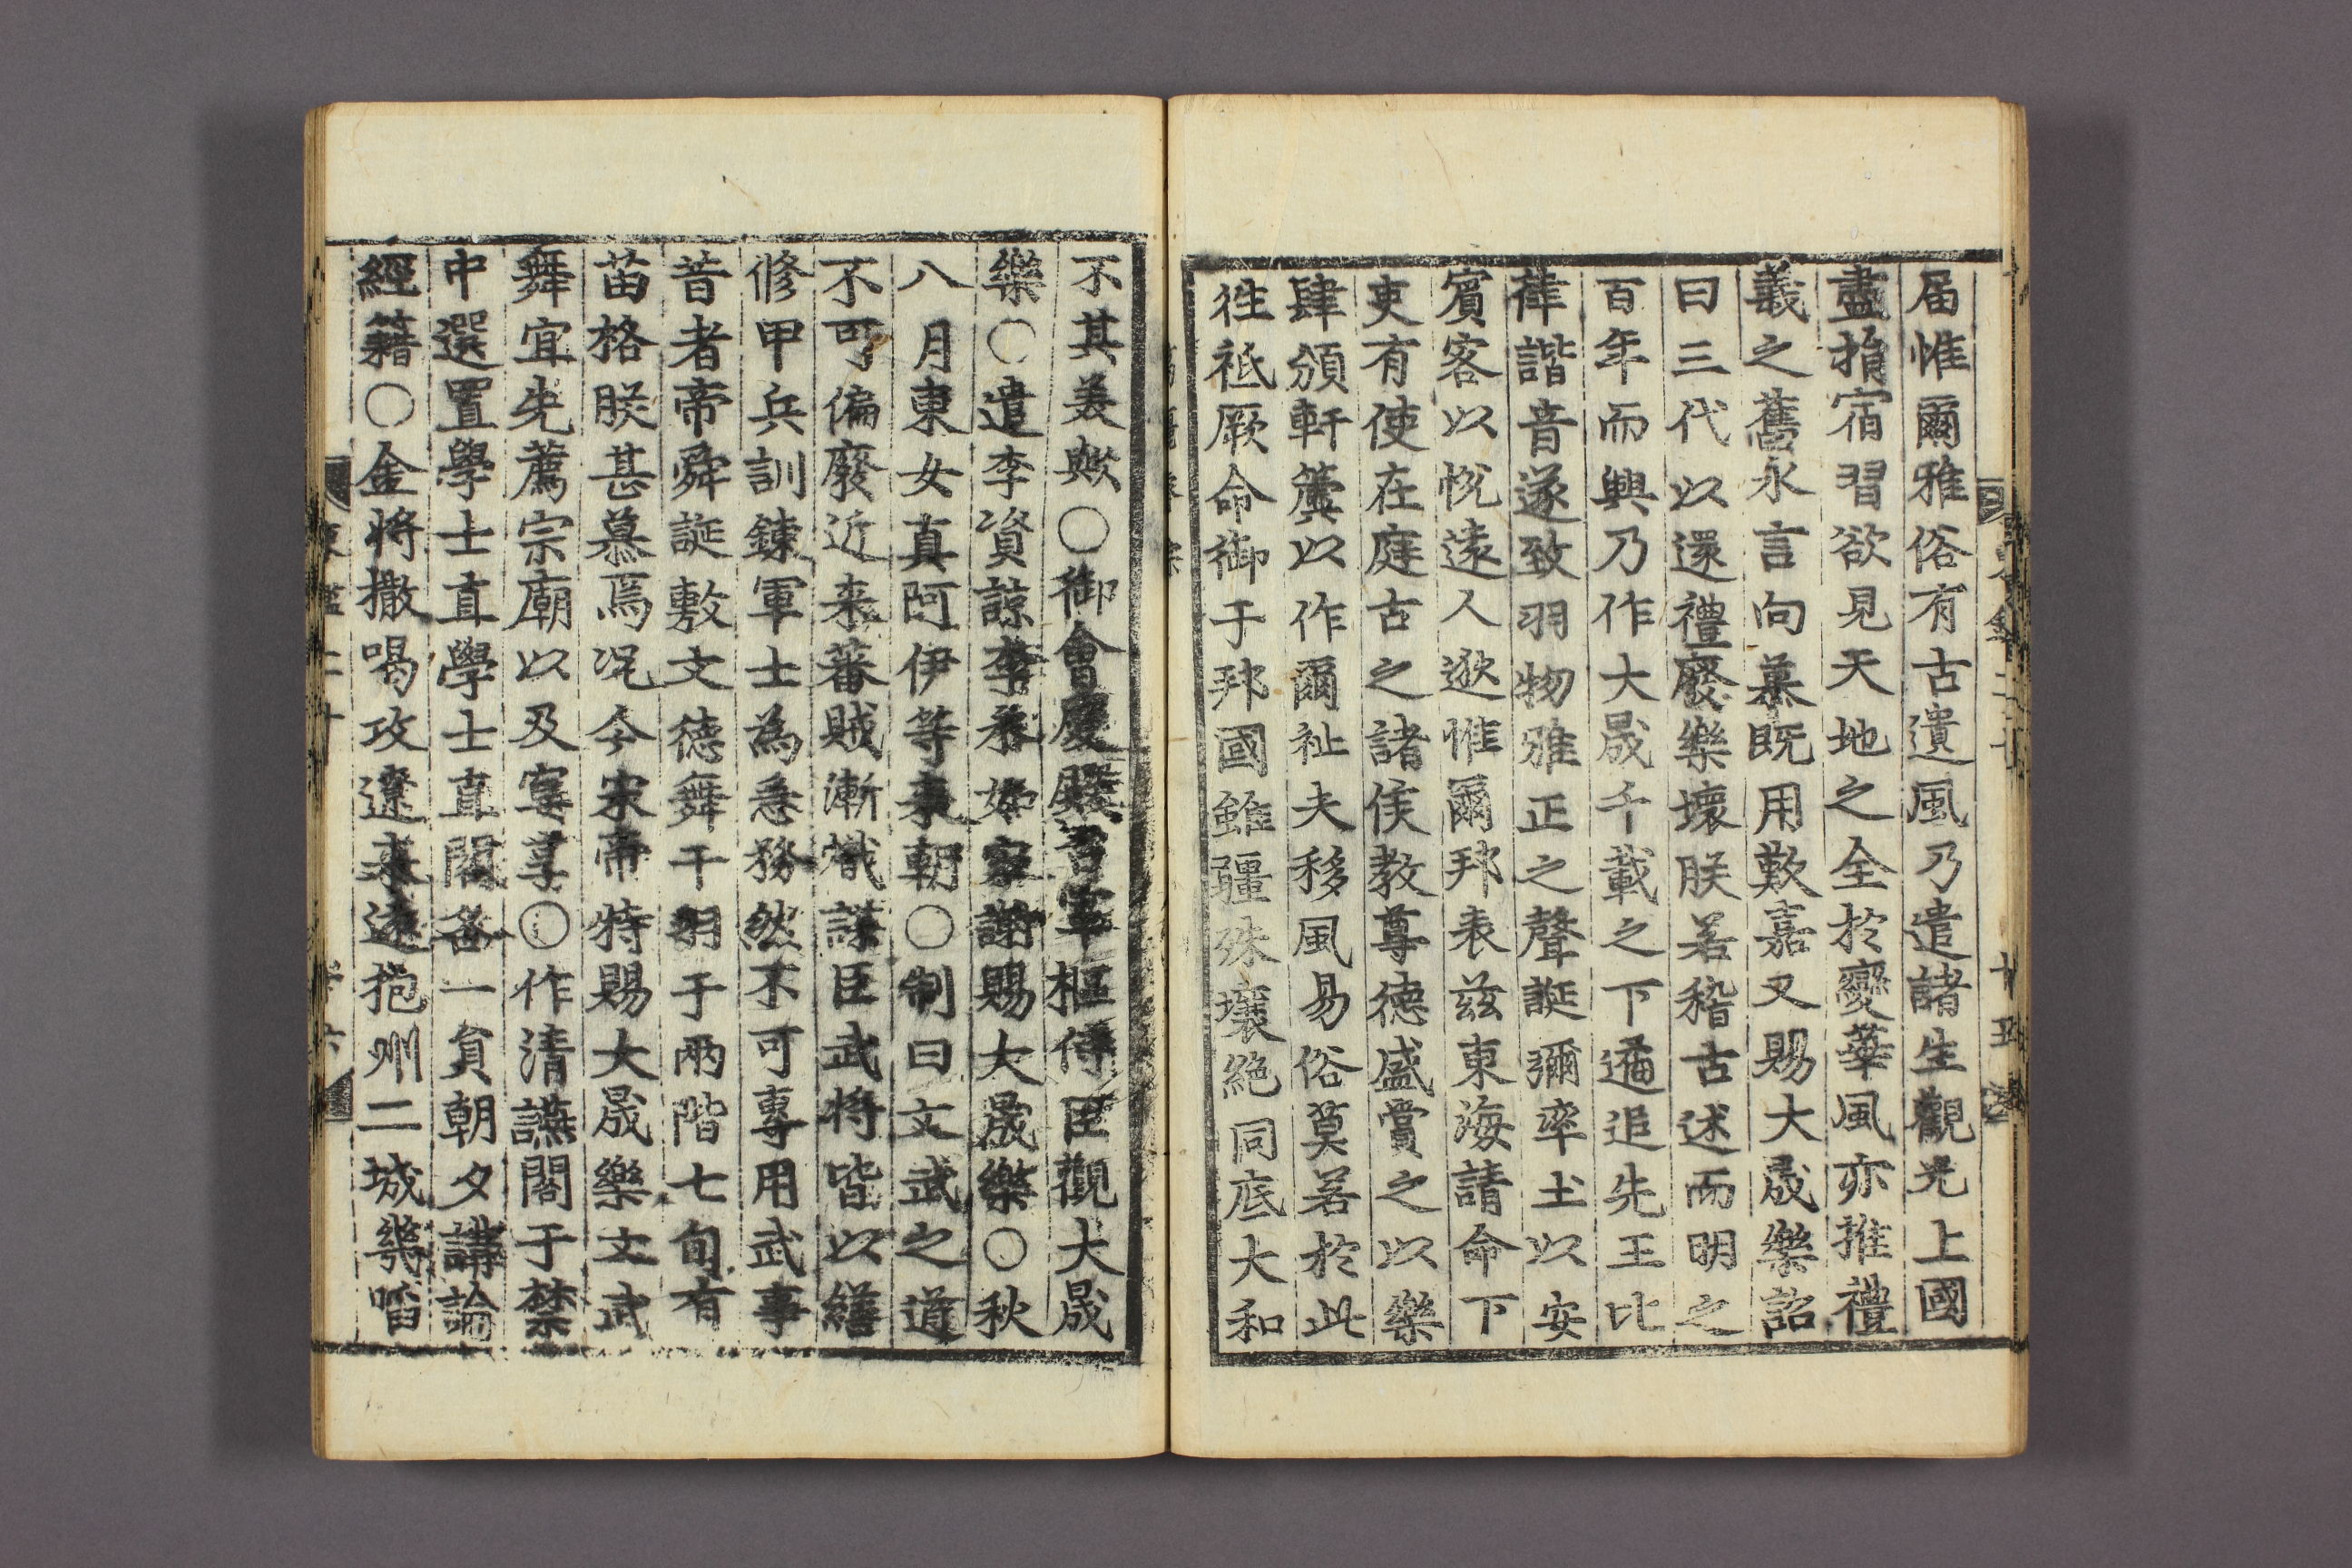 届惟爾雅俗有古遺風乃遣諸生觀光上國
盡捐宿習欲見天地之全於變華風亦推禮
義之舊永言向慕既用歎嘉又賜大晟樂詔
曰三代以還禮廢樂壞朕若稽古述而明之
百年而興乃作大晟千載之下遹追先王比
律諧音遂致羽物雅正之聲誕彌率土以安
賓客以悅遠人逖惟爾邦表玆東海請命下
吏有使在庭古之諸侯教尊德盛賞之以樂
肆頒軒簴以作爾祉夫移風易俗莫若於此
徃祗厥命御于邦國雖疆殊壤絶同底大和
不其美歟〇御會慶殿召宰樞侍臣觀大晟
樂〇遣李資諒李永如宋謝賜大晟樂〇秋
八月東女真阿伊等來朝〇制曰文武之道
不可偏廢近来蕃賊漸熾謀臣武將皆以繕
修甲兵訓鍊軍士為急務然不可專用武事
昔者帝舜誕敷文德舞干羽于兩階七旬有
苗格朕甚慕焉况今宋帝特賜大晟樂文武
舞宜先薦宗廟以及宴享〇作清讌閣于禁
中選置學士直學士直閣各一負朝夕講論
經籍〇金將撒喝攻遼来遠抱州二城幾陷